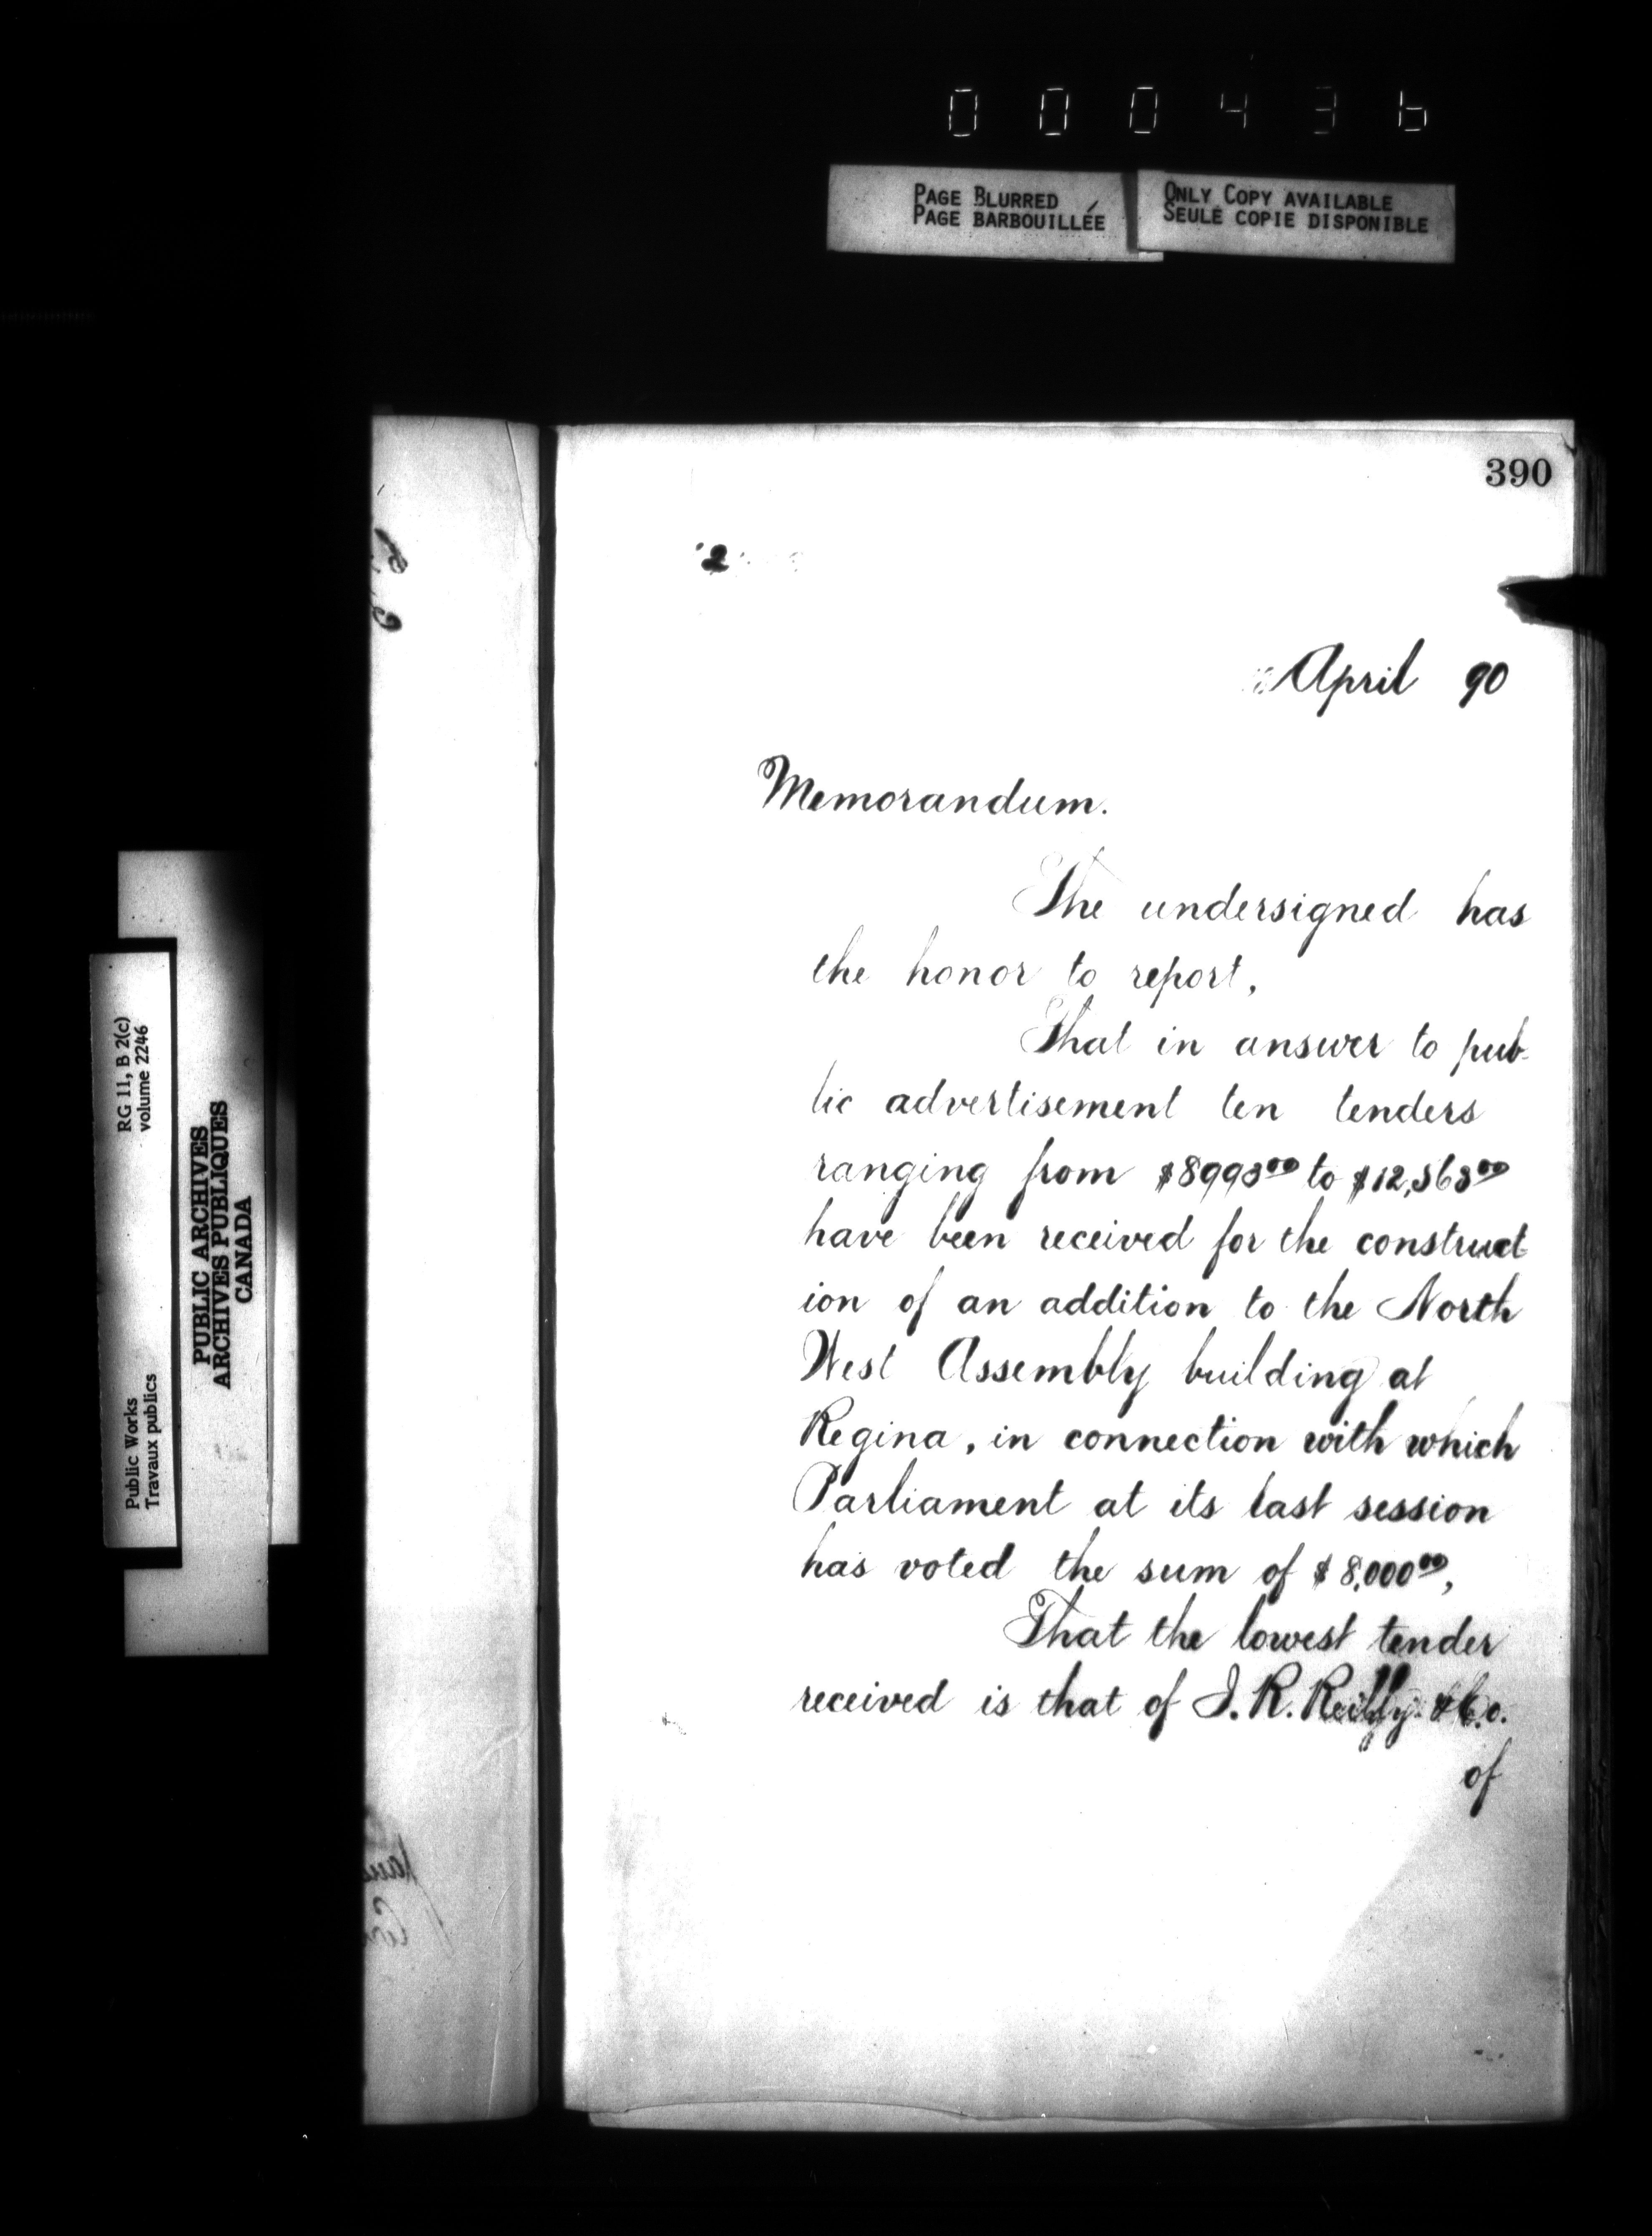 000436
PAGE BLURRED
PAGE BARBOUILLÉE
ONLY COPY AVAILABLE
SEULE COPIE DISPONIBLE
390
2
April 90
Memorandum.
The undersigned has
the honor to report,
That in answer to pub-
lic advertisement ten tenders
ranging from $8993 00 to $12,363 00
have been received for the construct
ion of an addition to the North
West Assembly building at
Regina, in connection with which
Parliament at its last session
has voted the sum of $8,000 00,
That the lowest tender
received is that of J. R. Reilly & Co.
of
RG 11, B 2(c)
volume 2246
Public Works
Travaux publics
PUBLIC ARCHIVES
ARCHIVES PUBLIQUES
CANADA